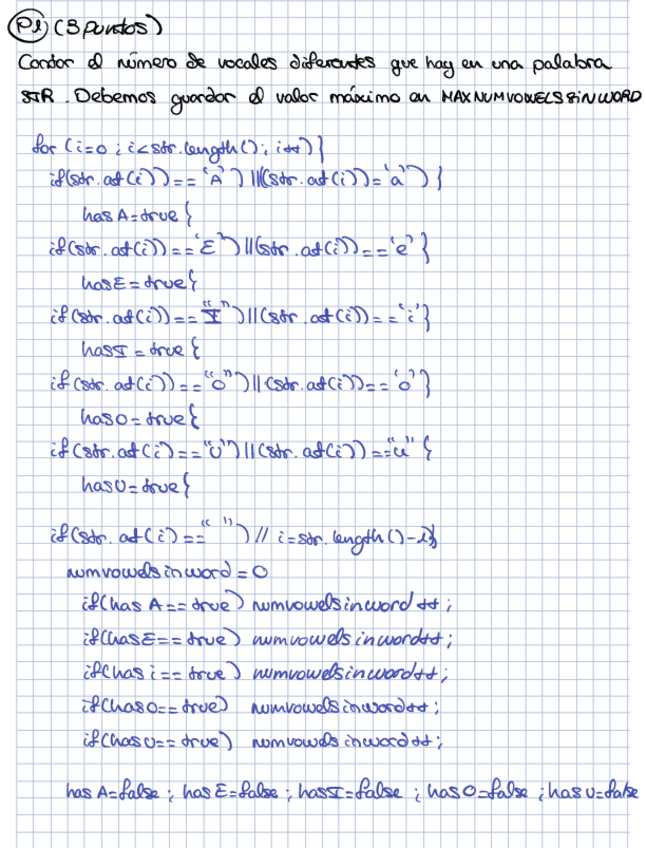 P1 (3 puntos)
Contar el número de vocales diferentes que hay en una palabra
STR. Debemos guardar el valor máximo en MAXNUMVOWELSINWORD
for (i=0 ; i<str.length(); i++) {
if(str.at(i))=='A') ||(str.at(i))='a') {
has A=true {
if(str.at(i))=='E')||(str.at(i))=='e' }
hasE=true{
if(str.at(i))=="I")||(str.at(i))=='i'}
hasI=true {
if(str.at(i))=="O")||(str.at(i))=='o'}
hasO=true{
if(str.at(i)=="U")||(str.at(i))=="u" {
hasU=true{
if(str.at(i)==" ") // i=str.length()-1}
numvowelsinword=0
if(has A==true) numvowelsinword++;
if(hasE==true) numvowelsinword++;
if(hasi==true) numvowelsinword++;
if(hasO==true) numvowelsinword++;
if(hasU==true) numvowelsinword++;
has A=false ; has E=false ; hasI=false ; has O=false ; has U=false